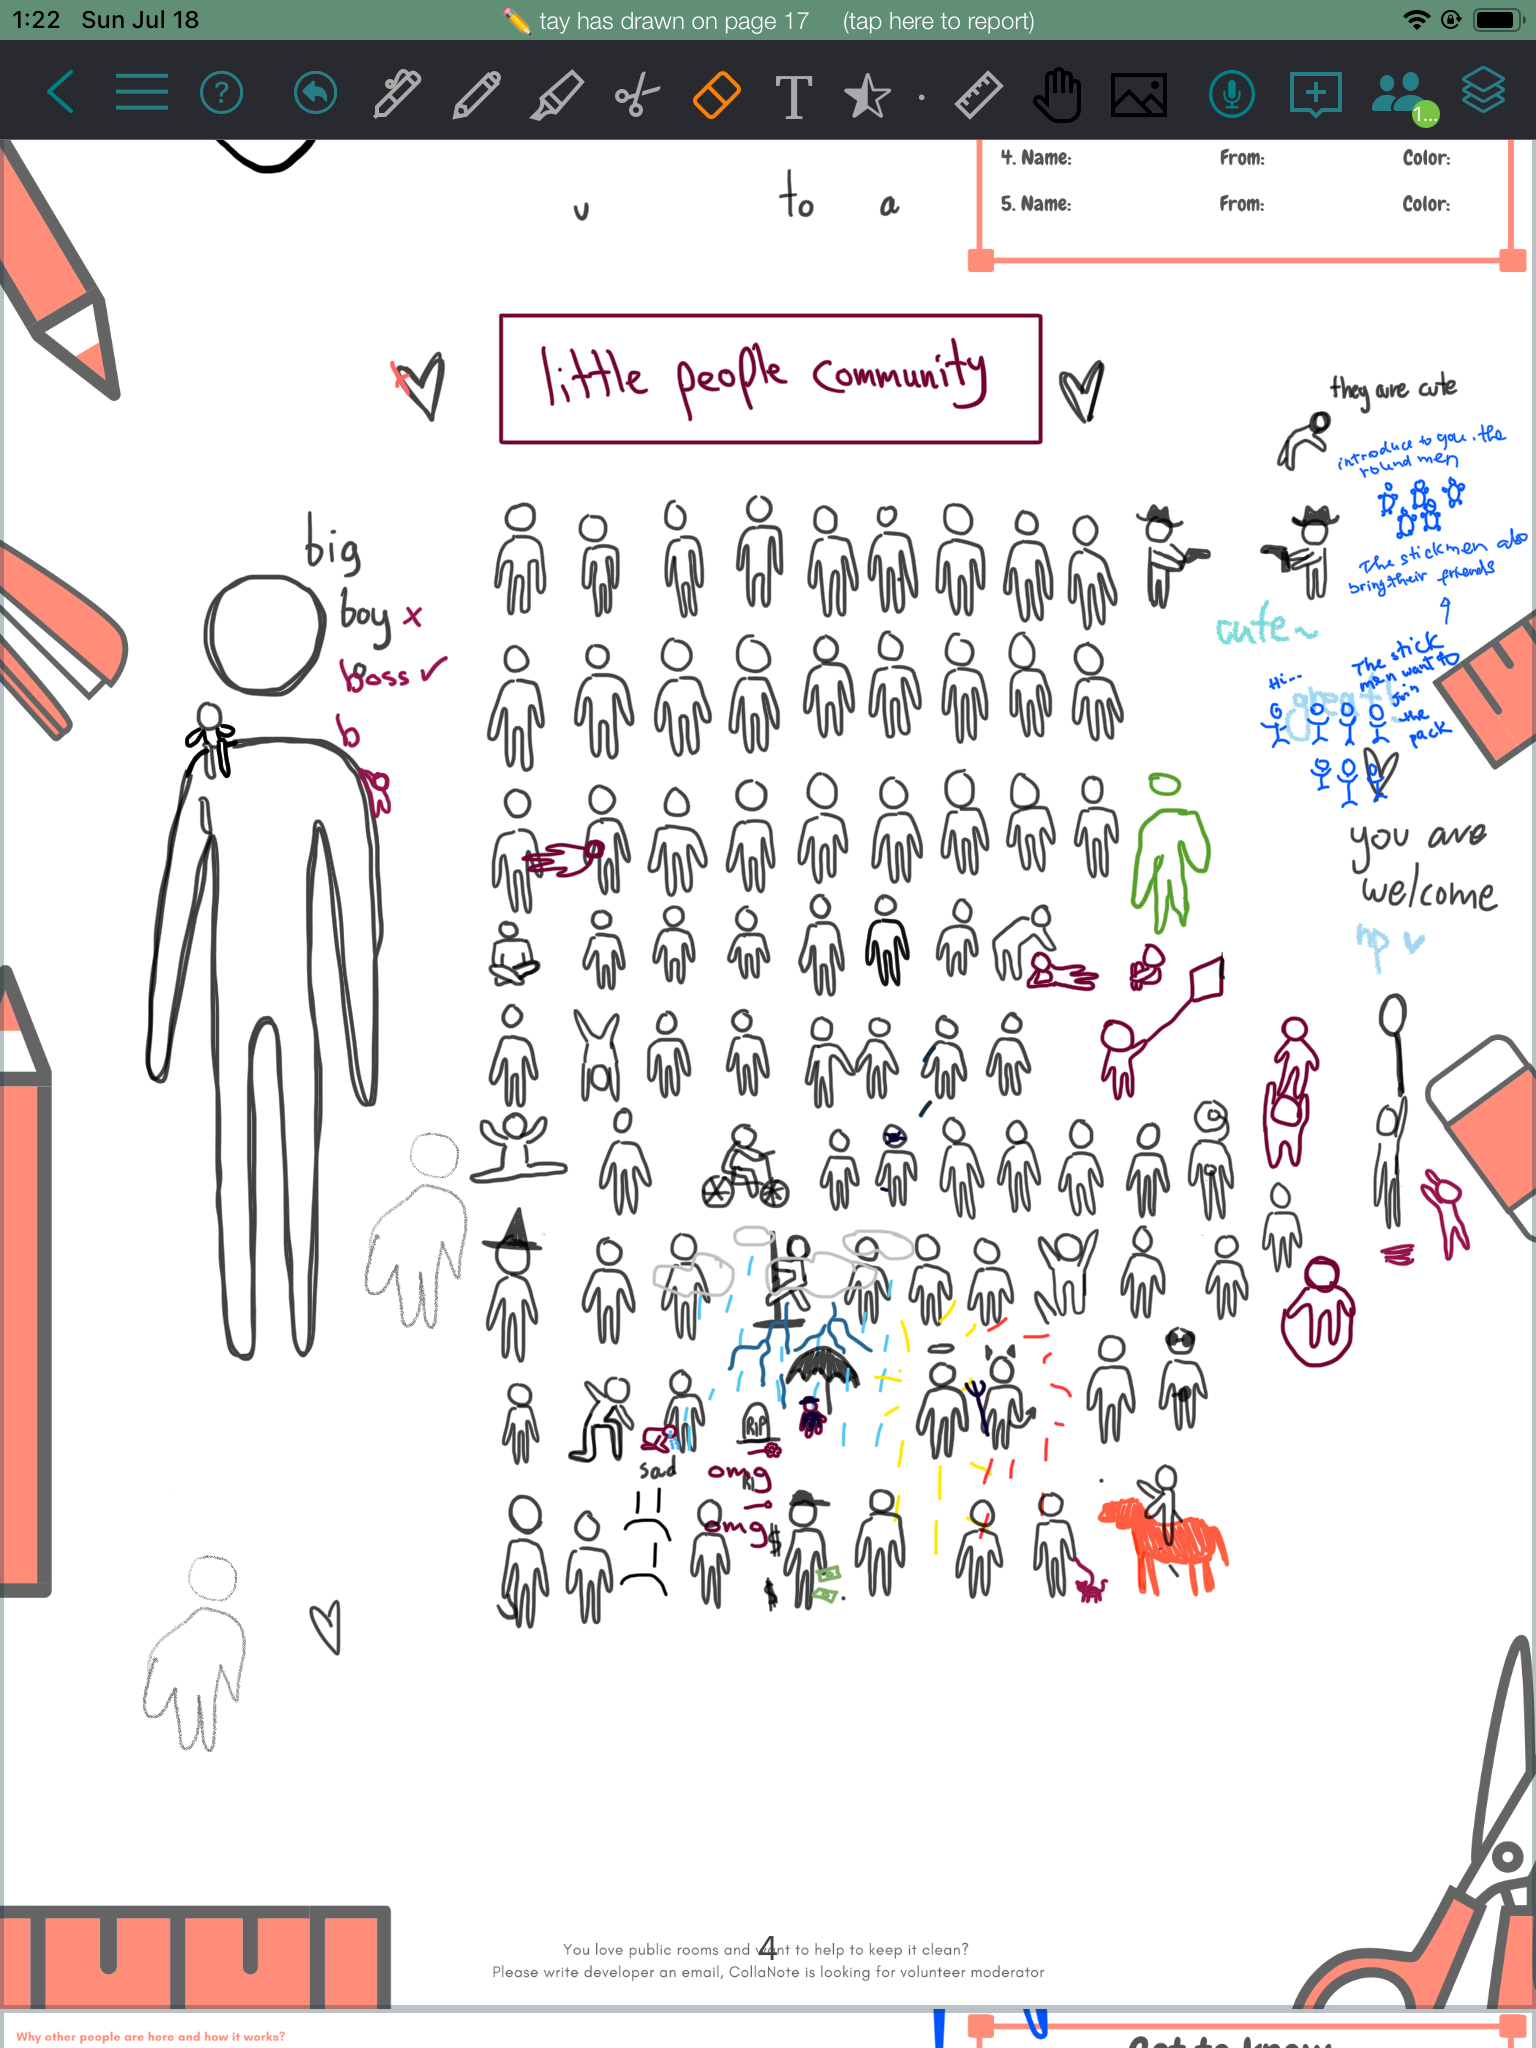 1:22 Sun Jul 18
✏️ tay has drawn on page 17 (tap here to report)
?
T
1...
4. Name: From: Color:
5. Name: From: Color:
u to a
little people community
they are cute
introduce to you. the
round men
The stickmen also
bring their friends
big
boy x
boss ✓
b
cute~
The stick
men want to
join
the
pack
Hi...
great!
you are
welcome
np
RIP
sad
omg
omg
$
$
4
You love public rooms and want to help to keep it clean?
Please write developer an email, CollaNote is looking for volunteer moderator
Why other people are here and how it works?
Get to know